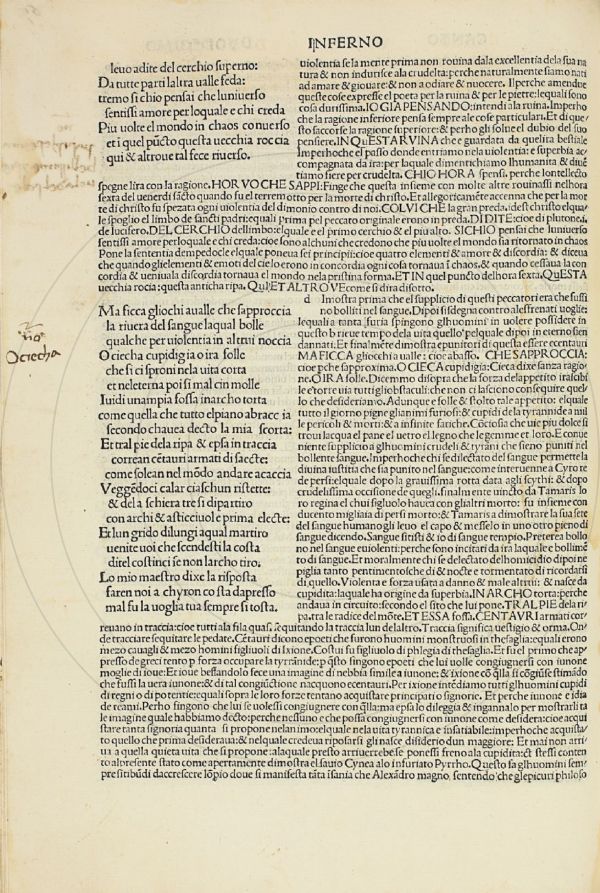 INFERNO
leuo adite del cerchio superno:
Da tutte parti laltra ualle feda:
tremo si chio pensai che luniuerso
sentissi amore per loquale e chi creda
Piu uolte el mondo in chaos conuerso
et i quel pūcto questa uecchia roccia
qui & altroue tal fece riuerso.
uiolentia se la mente prima non rouina dala excellentia dela sua na
tura & non indurisce ala crudelta: perche naturalmente siamo nati
ad amare & giouare: & non a odiare & nuocere. Il perche amendue
queste cose expresse el poeta per la ruina & per le pietre: lequali sono
cosa durissima. IO GIA PENSANDO: intendi ala ruina. Imperho
che la ragione inferiore pensa sempre ale cose particulari. Et di que
sto saccorse la ragione superiore: & perho gli solue el dubio del suo
pensiere. IN QVESTA RVINA che e guardata da quella bestiale
Imperhoche el passo donde entriamo nela uiolentia: e superbia ac
compagnata da ira: per laquale dimentichiamo lhumanita & diuē
tiamo siere per crudelta. CHIO HORA spensi. perche lontellecto
spegne lira con la ragione. HOR VO CHE SAPPI: Finge che questa insieme con molte altre rouinassi nelhora
sexta del uenerdi sācto quando fu el terremotto per la morte di christo. Et allegoricamēte accenna che per la mor
te di christo fu spezato ogni uiolentia del dimonio contro di noi. COLVI CHE la gran preda. idest christo elqua
le spoglio el limbo de sancti padri: equali prima pel peccato originale erono in preda. DI DITE: cioe di plutone. i.
de lucifero. DEL CERCHIO del limbo: elquale e el primo cerchio & el piu alto. SI CHIO pensai che luniuerso
sentissi amore per loquale e chi creda: cioe sono alchuni che credono che piu uolte el mondo sia ritornato in chaos
Pone la sententia dempedocle elquale poneua sei principii: cioe quattro elementi & amore & discordia: & diceua
che quando gli elementi & emoti del cielo erono in concordia ogni cosa tornaua ī chaos. & quando cessaua la con
cordia & ueniua la discordia tornaua el mondo nela pristina forma. ET IN quel puncto delhora sexta. QVESTA
uecchia rocia: questa anticha ripa. QVI ET ALTROVE come si dira disotto.
Ma ficca gliochi aualle che sapproccia
la riuera del sangue laqual bolle
qual che per uiolentia in altrui noccia
O ciecha cupidigia o ira folle
che si ci sproni nela uita corta
et neleterna poi si mal cin molle
Iuidi unampia fossa in archo torta
come quella che tutto elpiano abraccia
secondo chauea decto la mia scorta:
Et tral pie dela ripa & epsa in traccia
correan cētauri armati di saecte:
come solean nel mōdo andare acaccia
Veggēdoci calar ciaschun ristette:
& dela schiera tre si dipartiro
con archi & asticciuole prima electe:
Et lun grido dilungi aqual martiro
uenite uoi che scendesti la costa
ditel costinci se non larcho tiro.
Lo mio maestro dixe la risposta
faren noi a chyron costa dapresso
mal fu la uoglia tua sempre si tosta.
d Imostra prima che el supplicio di questi peccatori era che fussi
no bolliti nel sangue. Dipoi si sdegna contro alesfrenati uoglie:
lequali a tanta furia spingono glhuomini in uolere possidere in
questo brieue tempo dela uita quello pel quale dipoi in eterno sien
dannati. Et finalmente dimostra e punitori di questa essere e centauri
MA FICCA gliocchi a ualle: cioe abasso. CHE SAPPROCCIA:
cioe pche sapproxima. O CIECA cupidigia: Cieca dixe sanza ragio
ne. O IRA folle. Dicemmo disopra che la forza delappetito irascibi
le e torre uia tutti gli obstaculi: che non ci lascino conseguire quel
lo che desideriamo. Adunque folle & stolto tale appetito: elquale
tutto il giorno pigne glianimi furiosi: & cupidi dela tyrannide a mil
le pericoli & morti: & a infinite fatiche. Cōciosa che uie piu dolce si
troui lacqua el pane el uetro el legno che le gemme et loro. E conue
niente supplicio a glhuomini crudeli & tyrāni che sieno puniti nel
bollente sangue. Imperhoche chi se dilectato del sangue permette la
diuina iustitia che sia punito nel sangue: come interuenne a Cyro re
de persi: elquale dopo la grauissima rotta data agli scythi: & dopo
crudelissima occisione de quegli. finalmente uincto da Tamaris lo
ro regina el chui figluolo hauea con glialtri morto: fu insieme con
ducento migliaia di persi morto: & Tamaris a dimostrare la sua sete
del sangue humano gli leuo el capo & messelo in uno otro pieno di
sangue dicendo. Sangue sitisti & io di sangue tempio. Preterea bollo
no nel sangue euiolenti: perche sono incitati da ira laquale e bollimē
to di sangue. Et moralmente chi se delectato del homicidio dipoi ne
piglia tanto pentimento sche di & nocte e tormentato di ricordarsi
di quello. Violenta e forza usata a danno & male altrui: & nasce da
cupidita: laquale ha origine da superbia. IN ARCHO torta: perche
andaua in circuito: secondo el sito che lui pone. TRAL PIE dela ri
pa. tra le radice del mōte. ET ESSA fossa. CENTAVRI armati cor
reuano in traccia: cioe tutti ala fila quasi sequitando la traccia lun de laltro. Traccia significa uestigio & orma. On
de tracciare sequitare le pedate. Cētauri dicono e poeti che furono huomini monstruosi in thesaglia: equali erono
mezo cauagli & mezo homini figliuoli di Ixione. Costui fu figliuolo di phlegia di thesaglia. Et fu el primo che ap
presso de greci tento p forza occupare la tyrrānide: p q̄sto fingono e poeti che lui uolle congiugnersi con iunone
moglie di ioue: Et ioue beffandolo fece una imagine di nebbia simile a iunone: & ixione cō q̄lla si cōgiūse stimādo
che fussi la uera iunone: & di tal congiūctione nacquono e centauri. Per ixione intēdiamo tutti glhuomini cupidi
di regni o di potentie: equali sopra le loro forze tentano acquistare principato o signorie. Et perche iunone e idia
de reami. Perho fingono che lui se uolessi congiugnere con q̄lla: ma epsa lo dileggia & ingannalo per mostrarli ta
le imagine quale habbiamo decto: perche nessuno e che possa congiugnersi con iunone come desidera: cioe acqui
stare tanta signoria quanta si propone nelanimo: elquale nela uita tyrannica e insatiabile: imperhoche acquista
to quello che prima desideraua: & nelquale credeua riposarsi gli nasce disiderio dun maggiore: Et mai non arri
ua a quella quieta uita che si propone: alaquale presto arriuerebbe se ponessi freno ala cupidita: & stessi conten
to alo presente stato come apertamente dimostra el sauio Cynea alo infuriato Pyrrho. Questo fa glhuomini sem
pre sitibūdi daccrescere lōpio doue si manifesta tāta isania che Alexādro magno, sentendo che gl epicuri philoso
nō
O ciecha